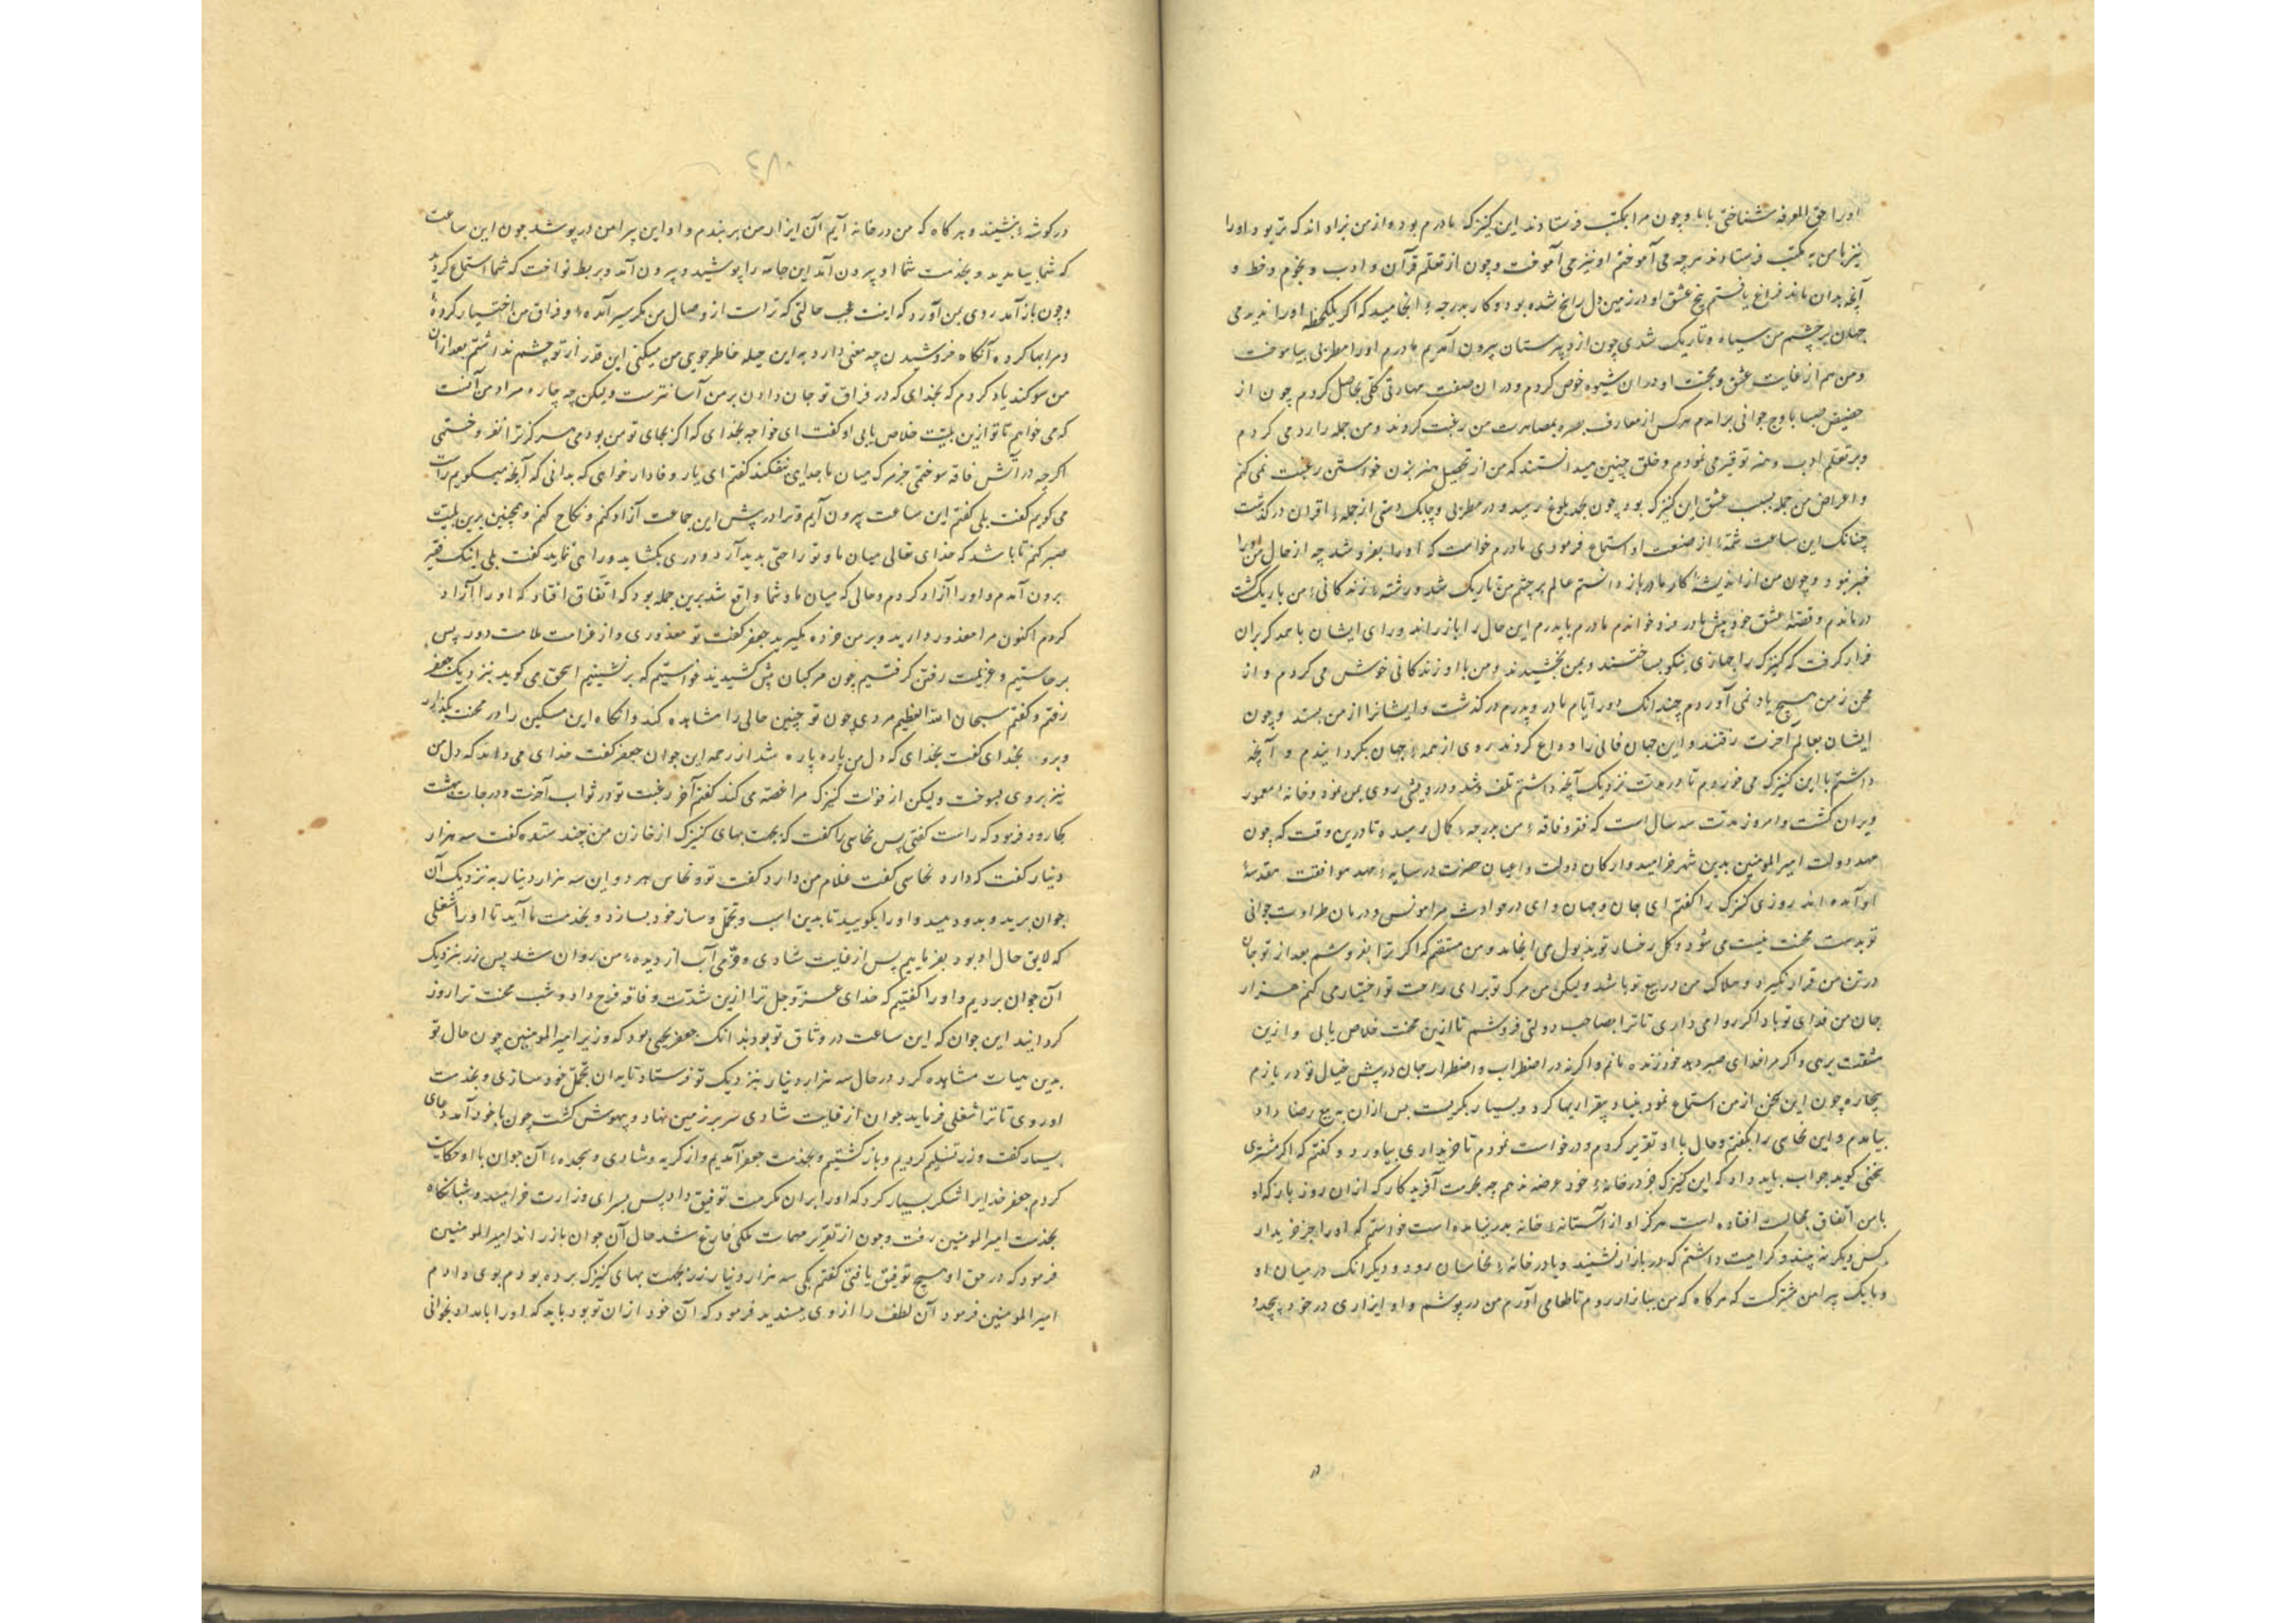 اورا حق المعرفه شناختی بابا و چون مرا بمکتب فرستادند این کنیزک مادرم بود و از من بزاد اندک تر بود و اورا
نیز با من به مکتب فرستادند هرچه می آموختم او نیز می آموخت و چون از تعلم قرآن و ادب و نجوم و خط و
آنچه بدان ماند فراغ یافتم بیخ عشق او در زمین دل راسخ شده بود و کار بدرجهٔ انجامید که اگر یکلحظه اورا ندیدمی
جهان بر چشم من سیاه و تاریک شدی چون از دبیرستان بیرون آمدیم مادرم اورا مطربی بیاموخت
و من هم از غایت عشق و محبت او در آن شیوه خوض کردم و در آن صنعت مهارتی کلی بحاصل کردم چون از
حضیض صبا باوج جوانی برآمدم هرکس از معارف بصره بمصاهرت من رغبت کردند و من جمله را رد می کردم
و بر تعلم ادب و هنر توفیر می نمودم و خلق چنین میدانستند که من از تحصیل هنر بزن خواستن رغبت نمی کنم
و اعراض من جمله بسبب عشق این کنیزک بود و چون بحد بلوغ رسید و در مطربی و چابک دستی از جملهٔ اقران درگذشت
چنانک این ساعت شمهٔ از صنعت او استماع فرمودی مادرم خواست که اورا بفروشد چه از حال من اورا
خبر نبود و چون من از اندیشهٔ کار مادر باز دانستم عالم بر چشم من تاریک شد و رشتهٔ زندگانی من باریک گشت
درماندم و قصهٔ عشق خود پیش مادر فرو خواندم مادرم با پدرم این حال را باز راند و رای ایشان با همدیگر بران
قرار گرفت که کنیزک را جهازی نیکو بساختند و بمن بخشیدند و من با او زندگانی خوش می کردم و از
محن زمن هیچ یاد نمی آوردم چندانک دور ایام مادر و پدرم درگذشت و ایشانرا از من بستد و چون
ایشان بعالم آخرت رفتند و این جهان فانی را وداع کردند روی از همهٔ جهان بگردانیدم و آنچه
داشتم با این کنیزک می خوردم تا در مدت نزدیک آنچه داشتم تلف شد و درویشی روی بمن نمود و خانهٔ معمور
ویران گشت و امروز مدت سه سال است که فقر و فاقهٔ من بدرجهٔ کمال رسیده تا درین وقت که چون
مهد دولت امیر المومنین بدین شهر خرامید و ارکان دولت و اعیان حضرت در سایهٔ مهد موافقت مقدسهٔ
او آمده اند روزی کنیزک را گفتم ای جان و جهان و ای در حوادث مرا مونس و درمان طراوت جوانی
تو بدست محنت نیست می شود و گل رخسار تو بذبول می انجامد و من متیقنم که اگر ترا بفروشم بعد از تو جان
در تن من قرار نگیرد و هلاک من در بیع تو باشد ولیکن من مرگ تو برای راحت تو اختیار می کنم هزار
جان من فدای تو باد اگر روا می داری تا ترا بصاحب دولتی فروشم تا ازین محنت خلاص یابی و ازین
مشقت برهی و اگر مرا خدای صبر دهد خود زنده مانم و اگر نه در اضطراب و اضطرار جان در پیش خیال تو در بازم
بیچاره چون این سخن از من استماع نمود بنیاد بیقراریها کرد و بسیار بگریست پس از آن به بیع رضا داد
بیامدم و این نخاس را بگفتم و حال با او تقریر کردم و درخواست نمودم تا خریداری بیاورد و گفتم که اگر مشتری
سخنی گوید جواب باید داد که این کنیزک جز در خانهٔ خود عرضه ندهم چه بحرمت آفریدگار که از ان روز باز که او
با من اتفاق مجالست افتاده است هرگز او از آستانهٔ خانه بدر نیامده است خواستم که اورا جز خریدار
کس دیگر نه بیند و کراهیت داشتم که در بازار نشیند و یا در خانهٔ نخاسان رود و دیگر آنک در میان او
و ما یک پیراهن مشترکست که هرگاه که من ببازار روم تا طعامی آورم من درپوشم و او ایزاری در خود پیچد و
در
در گوشهٔ بنشیند و هرگاه که من در خانه آیم آن ایزار من بربندم و او این پیراهن درپوشد چون این ساعت
که شما بیامدید و بخدمت شما او بیرون آمد این جامه را پوشید و بیرون آمد و بربط نواخت که شما استماع کردید
و چون باز آمد روی بمن آورد که اینت عجب حالتی که تراست از وصال من مگر سیر آمدهٔ و فراق من اختیار کردهٔ
و مرا بها کرده آنگاه فروشیدن چه معنی دارد به این حیله خاطر جویی من میکنی این قدر از تو چشم نداشتم بعد از ان
من سوگند یاد کردم که بخدای که در فراق تو جان دادن بر من آسانترست ولیکن چه چاره مراد من آنست
که می خواهم تا تو ازین بلیت خلاص یابی او گفت ای خواجه بخدای که اگر بجای تو من بودمی هرگز ترا نفروختمی
اگرچه در آتش فاقه سوختمی جز مرگ میان ما جدایی نیفکند گفتم ای یار وفادار خواهی که بدانی که آنچه میگویم راست
می گویم گفت بلی گفتم این ساعت بیرون آیم و ترا در پیش این جماعت آزاد کنم و نکاح کنم و همچنین برین بلیت
صبر کنم تا باشد که خدای تعالی میان ما و تو راحتی پدید آرد و دری بگشاید و راهی نماید گفت بلی اینک فقیر
بیرون آمدم و اورا آزاد کردم و حالی که میان ما و شما واقع شد برین جمله بود که اتفاق افتاد که اورا آزاد
کردم اکنون مرا معذور دارید و بر من خرده مگیرید جعفر گفت تو معذوری و از غرامت ملامت دور پس
برخاستیم و عزیمت رفتن گرفتیم چون مرکبان پیش کشیدند خواستیم که برنشینیم اسحق می گوید بنزدیک جعفر
رفتم و گفتم سبحان الله العظیم مردی چون تو چنین حالی را مشاهده کند و آنگاه این مسکین را در محنت بگذارد
و برود بخدای گفت بخدای که دل من پاره پاره شد از رحم این جوان جعفر گفت خدای می داند که دل من
نیز بر وی بسوخت ولیکن از فوات کنیزک مرا غصه می کند گفتم آخر رغبت تو در ثواب آخرت و درجات بهشت
کجا رود فرمود که راست گفتی پس نخاس را گفت که بجهت بهای کنیزک از خازن من چند ستده گفت سه هزار
دینار گفت که دارد نخاس گفت غلام من دارد گفت تو و نخاس هر دو این سه هزار دینار به نزدیک آن
جوان برید و بدو دهید و اورا بگویید تا بدین اسب و تجمل و ساز خود بسازد و بخدمت ما آید تا اورا شغلی
که لایق حال او بود بفرماییم پس از غایت شادی و خرمی آب از دیدهٔ من روان شد پس زر بنزدیک
آن جوان بردیم و اورا گفتیم که خدای عز و جل ترا ازین شدت و فاقه فرح داد و شب محنت ترا روز
گردانید این جوان که این ساعت در وثاق تو بود بدانک جعفر یحیی بود که وزیر امیر المومنین چون حال تو
بدین هیات مشاهده کرد در حال سه هزار دینار بنزدیک تو فرستاد تا بدان تجمل خود سازی و بخدمت
او روی تا ترا شغلی فرماید جوان از غایت شادی سر بر زمین نهاد و بیهوش گشت چون با خود آمد دعای
بسیار گفت و زر تسلیم کردیم و باز گشتیم و بخدمت جعفر آمدیم و از گریه و شادی و سجدهٔ آن جوان با او حکایت
کردم جعفر خدایرا شکر بسیار کرد که اورا بران مکرمت توفیق داد پس بسرای وزارت خرامید و شبانگاه
بخدمت امیر المومنین رفت و چون از تقریر مهمات ملکی فارغ شد حال آن جوان باز راند امیر المومنین
فرمود که در حق او هیچ توفیق یافتی گفتم بلی سه هزار دینار زر بجهت بهای کنیزک برده بودم بوی دادم
امیر المومنین فرمود آن لطف را از وی پسندید فرمود که آن خود از ان تو بود باید که اورا بامداد بخوانی